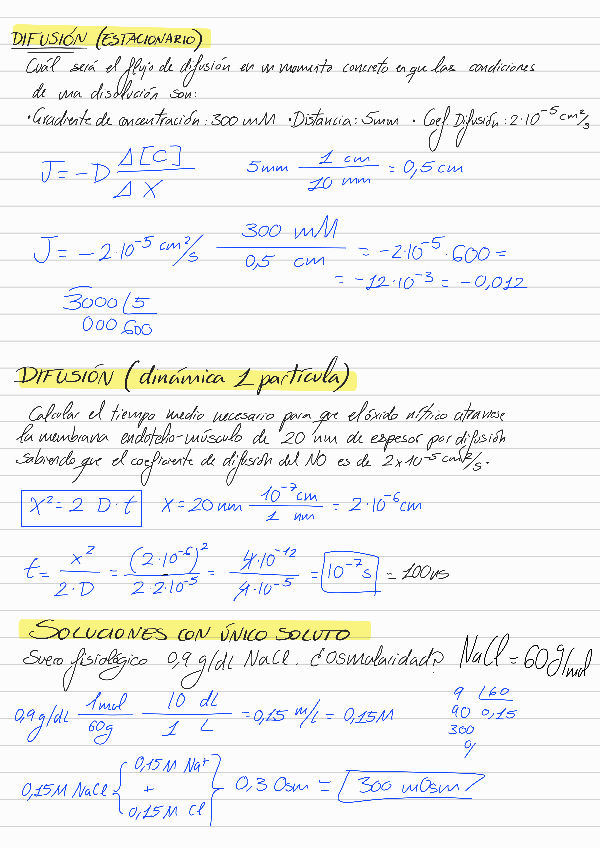 DIFUSIÓN (ESTACIONARIO)
Cuál será el flujo de difusión en un momento concreto en que las condiciones
de una disolución son:
·Gradiente de concentración: 300 mM ·Distancia: 5mm · Coef Difusión: 2·10⁻⁵ cm²/s
J = -D Δ[C] / ΔX    5mm 1 cm / 10 mm = 0,5 cm
J = -2·10⁻⁵ cm²/s 300 mM / 0,5 cm = -2·10⁻⁵·600 =
= -12·10⁻³ = -0,012
3000 | 5
000 600
DIFUSIÓN (dinámica 1 partícula)
Calcular el tiempo medio necesario para que el óxido nítrico atraviese
la membrana endotelio-músculo de 20 nm de espesor por difusión
sabiendo que el coeficiente de difusión del NO es de 2x10⁻⁵ cm²/s.
X² = 2 D·t    X = 20 nm 10⁻⁷cm / 1 nm = 2·10⁻⁶ cm
t = x² / 2·D = (2·10⁻⁶)² / 2·2·10⁻⁵ = 4·10⁻¹² / 4·10⁻⁵ = 10⁻⁷ s = 100ns
SOLUCIONES CON ÚNICO SOLUTO
Suero fisiológico 0,9 g/dL NaCl. ¿Osmolaridad? NaCl = 60 g/mol
0,9 g/dL 1 mol / 60g 10 dL / 1 L = 0,15 m/L = 0,15M
9 | 60
90 0,15
300
0/
0,15M NaCl { 0,15M Na⁺ + 0,15M Cl } 0,3 Osm = 300 mOsm